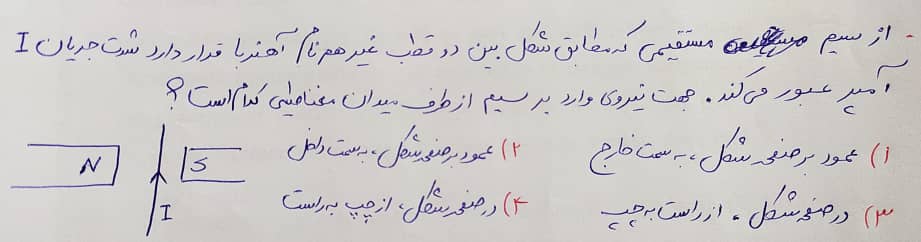 از سیم مستقیمی که مطابق شکل بین دو قطب غیر هم نام آهنربا قرار دارد شدت جریان I
آمپر عبور می کند. جهت نیروی وارد بر سیم از طرف میدان مغناطیسی کدام است؟
۱) عمود بر صفحه شکل، به سمت خارج ۲) عمود بر صفحه شکل، به سمت داخل
۳) در صفحه شکل، از راست به چپ ۴) در صفحه شکل، از چپ به راست
N S
I